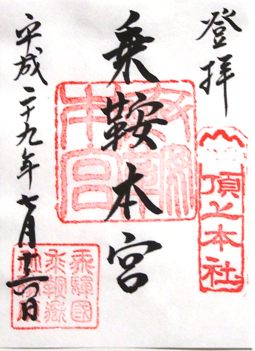 登拝
頂上本社
乗鞍本宮
平成二十九年七月十六日